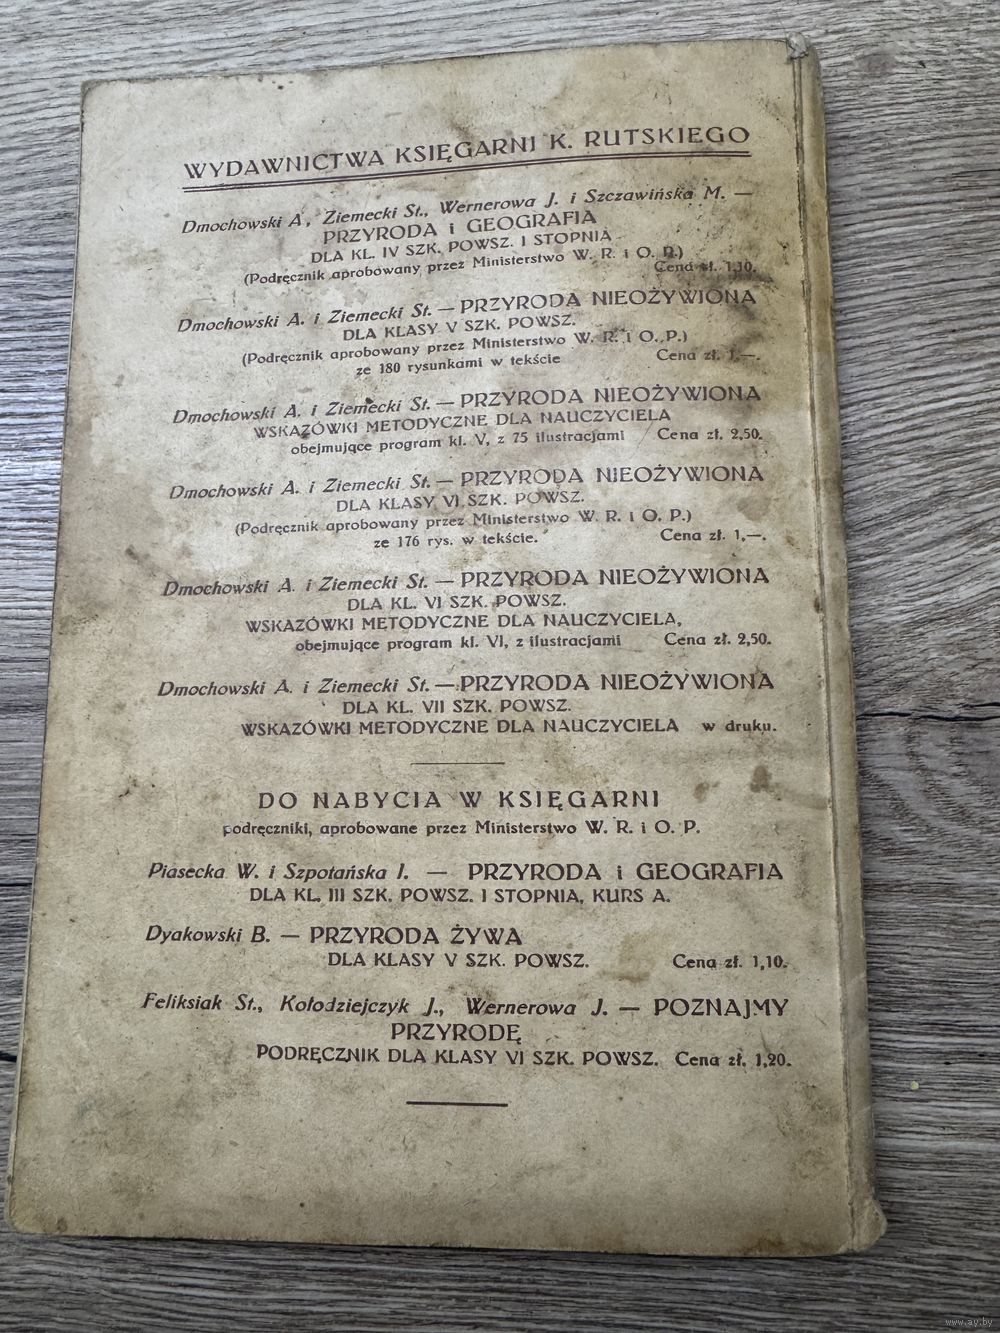 WYDAWNICTWA KSIĘGARNI K. RUTSKIEGO
Dmochowski A, Ziemecki St., Wernerowa J. i Szczawińska M. —
PRZYRODA i GEOGRAFIA
DLA KL. IV SZK. POWSZ. I STOPNIA
(Podręcznik aprobowany przez Ministerstwo W. R. i O. P.)
Cena zł. 1,10.
Dmochowski A. i Ziemecki St. — PRZYRODA NIEOŻYWIONA
DLA KLASY V SZK. POWSZ.
(Podręcznik aprobowany przez Ministerstwo W. R. i O. P.)
ze 180 rysunkami w tekście Cena zł. 1,—.
Dmochowski A. i Ziemecki St. — PRZYRODA NIEOŻYWIONA
WSKAZÓWKI METODYCZNE DLA NAUCZYCIELA
obejmujące program kl. V, z 75 ilustracjami Cena zł. 2,50.
Dmochowski A. i Ziemecki St. — PRZYRODA NIEOŻYWIONA
DLA KLASY VI SZK. POWSZ.
(Podręcznik aprobowany przez Ministerstwo W. R. i O. P.)
ze 176 rys. w tekście. Cena zł. 1,—.
Dmochowski A. i Ziemecki St. — PRZYRODA NIEOŻYWIONA
DLA KL. VI SZK. POWSZ.
WSKAZÓWKI METODYCZNE DLA NAUCZYCIELA,
obejmujące program kl. VI, z ilustracjami Cena zł. 2,50.
Dmochowski A. i Ziemecki St. — PRZYRODA NIEOŻYWIONA
DLA KL. VII SZK. POWSZ.
WSKAZÓWKI METODYCZNE DLA NAUCZYCIELA w druku.
DO NABYCIA W KSIĘGARNI
podręczniki, aprobowane przez Ministerstwo W. R. i O. P.
Piasecka W. i Szpotańska I. — PRZYRODA i GEOGRAFIA
DLA KL. III SZK. POWSZ. I STOPNIA, KURS A.
Dyakowski B. — PRZYRODA ŻYWA
DLA KLASY V SZK. POWSZ. Cena zł. 1,10.
Feliksiak St., Kołodziejczyk J., Wernerowa J. — POZNAJMY
PRZYRODĘ
PODRĘCZNIK DLA KLASY VI SZK. POWSZ. Cena zł. 1,20.
www.ay.by